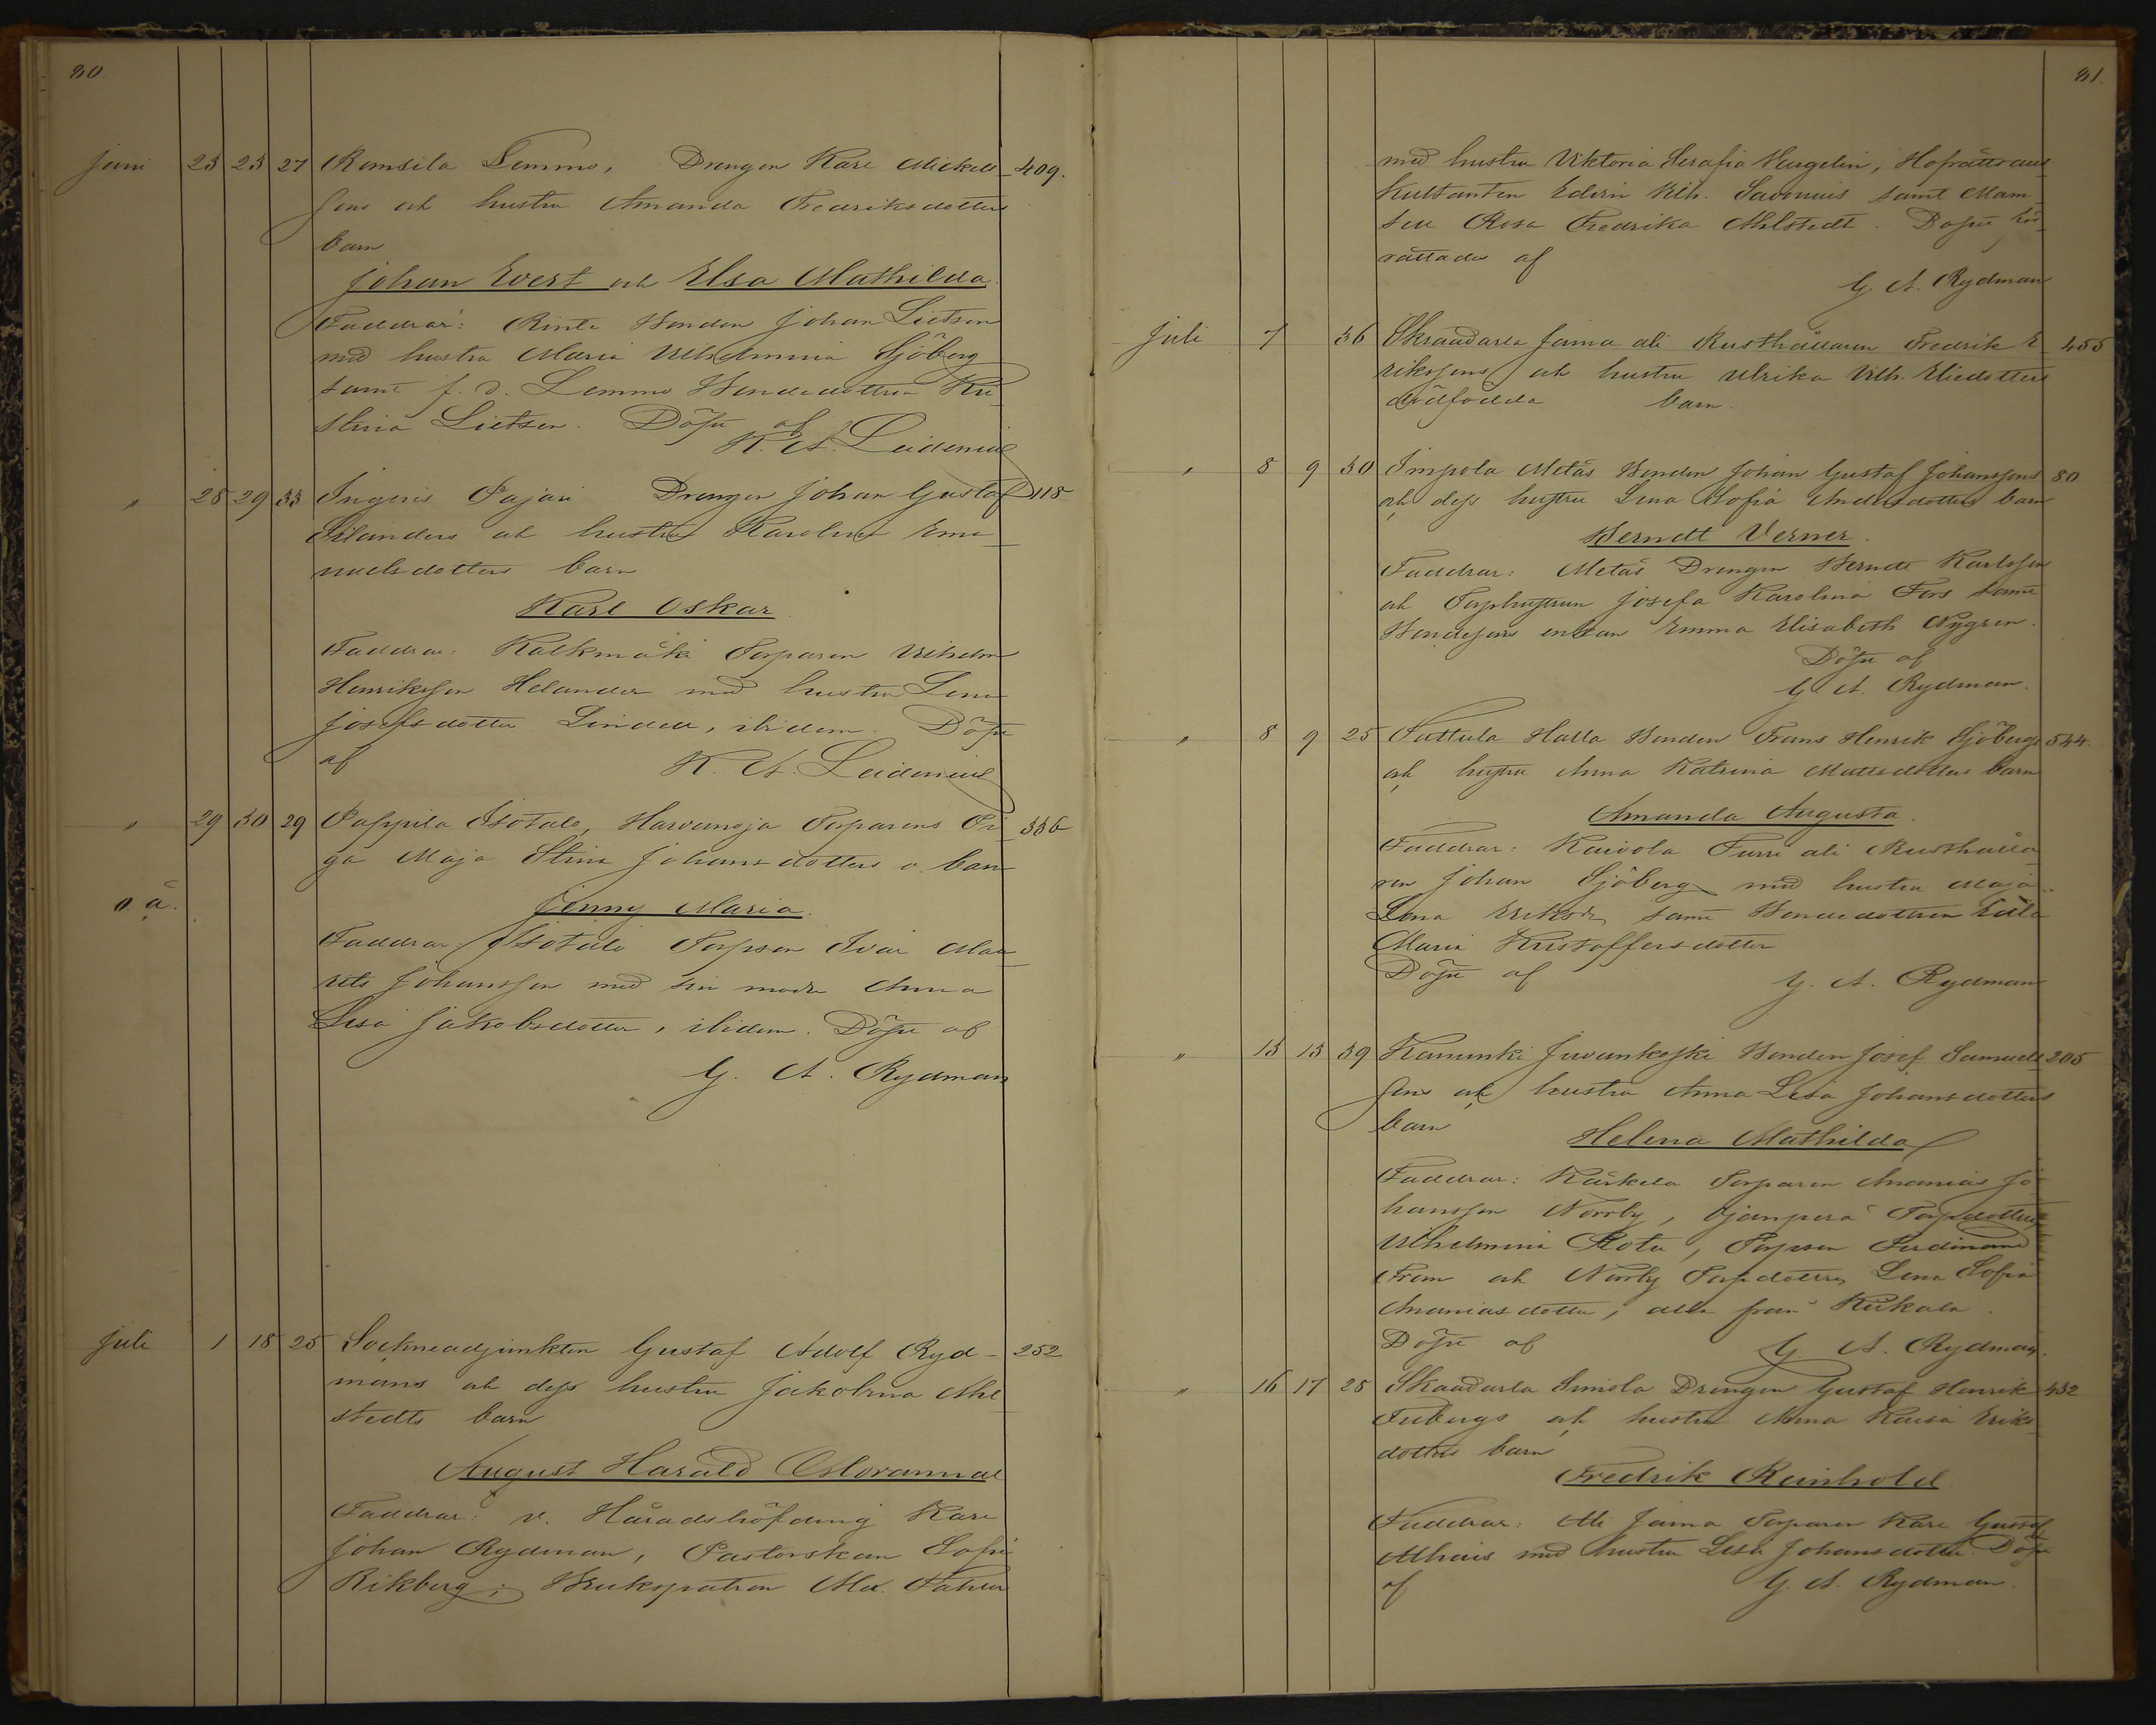 80.
Juni 23 23 27 Romsila Lemmo, Drengen Karl Mickels- 409.
sons och hustru Amanda Fredriksdotters
barn
Johan Evert och Elsa Mathilda.
Faddrar: Rinte Bonden Johan Lietsen
med hustru Maria Vilhelmina Sjöberg
samt f. d. Lemmo Bondedottren Kri-
stina Lietsen. Döpte af
K. A. Leidenius
" 28 29 33 Ingeris Pajari Drengen Johan Gustaf 118
Silanders och hustru Karolina Ema-
nuelsdotters barn
Karl Oskar
Faddrar: Kalkmäki Torparen Vilhelm
Henriksson Helander med hustru Lena
Josefsdotter Lindell, ibidem. Döpt
af K. A. Leidenius
" 29 30 29 Pappila Isotalo, Harvanoja Torparens Pi- 336
ga Maja Stina Johansdotters o. barn
o. ä.
Jenny Maria.
Faddrar: Isotalo Torpson Ivar Mau-
rits Johansson med sin moder Anna
Lisa Jakobsdotter, ibidem. Döpt af
G. A. Rydman
Juli 1 18 25 Sockneadjunkten Gustaf Adolf Ryd- 252
mans och dess hustru Jakobina Ahl-
stedts barn
August Harald
Faddrar: v. Häradshöfding Karl
Johan Rydman, Pastorskan Sofie
Rikberg; Brukspatron Alex.
81.
med hustru Viktoria Serafia, Hofrättsaus-
kultanten Edvin Vilh. Savonius samt Mam-
sell Rosa Fredrika Ahlstedt. Dopet för-
rättades af
G. A. Rydman
Juli 7 36 Skraadarla Jama ali Rusthållaren Fredrik E- 455
rikssons och hustru Ulrika Vilh. Eliedotters
dödfödda barn.
" 8 9 30 Impola Metäs Bonden Johan Gustaf Johanssons 80
och dess hustru Lina Sofia Andersdotters barn
Berndt Verner.
Faddrar: Metäs Drengen Berndt Karlsson
och Torphustrun Josefa Karolina Fors samt
Bondesons enkan Emma Elisabeth Nygren.
Döpt af
G. A. Rydman.
" 8 9 25 Tattula Halla Bonden Frans Henrik Sjöbergs 544.
och hustru Anna Katrina Mattsdotters barn
Amanda Augusta.
Faddrar: Kaivola Furri ali Rusthålla-
ren Johan Sjöberg med hustru Maja
Lena Eriksdr samt Bondedottren
Maria Kristoffersdotter
Döpt af G. A. Rydman
" 13 13 39 Kanunki Juvankoski Bonden Josef Samuels- 205
sons och hustru Anna Lisa Johansdotters
barn
Helena Mathilda
Faddrar: Kärkela Torparen Ananias Jo-
hansson Norrby, Ojanperä Torpdottren
Vilhelmina, Torpson Ferdinand
Fram och Norrby Torpdottren Lena Sofia
Ananiasdotter, alla från Kiikala.
Döpt af G. A. Rydman.
" 16 17 28 Skaadarla Simola Drengen Gustaf Henrik 432
Fribergs och hustru Anna Kaisa Eriks-
dotters barn
Fredrik Reinhold
Faddrar: Ali Jama Torparen Karl Gustaf
med hustru Lisa Johansdotter. Döpt
af G. A. Rydman.